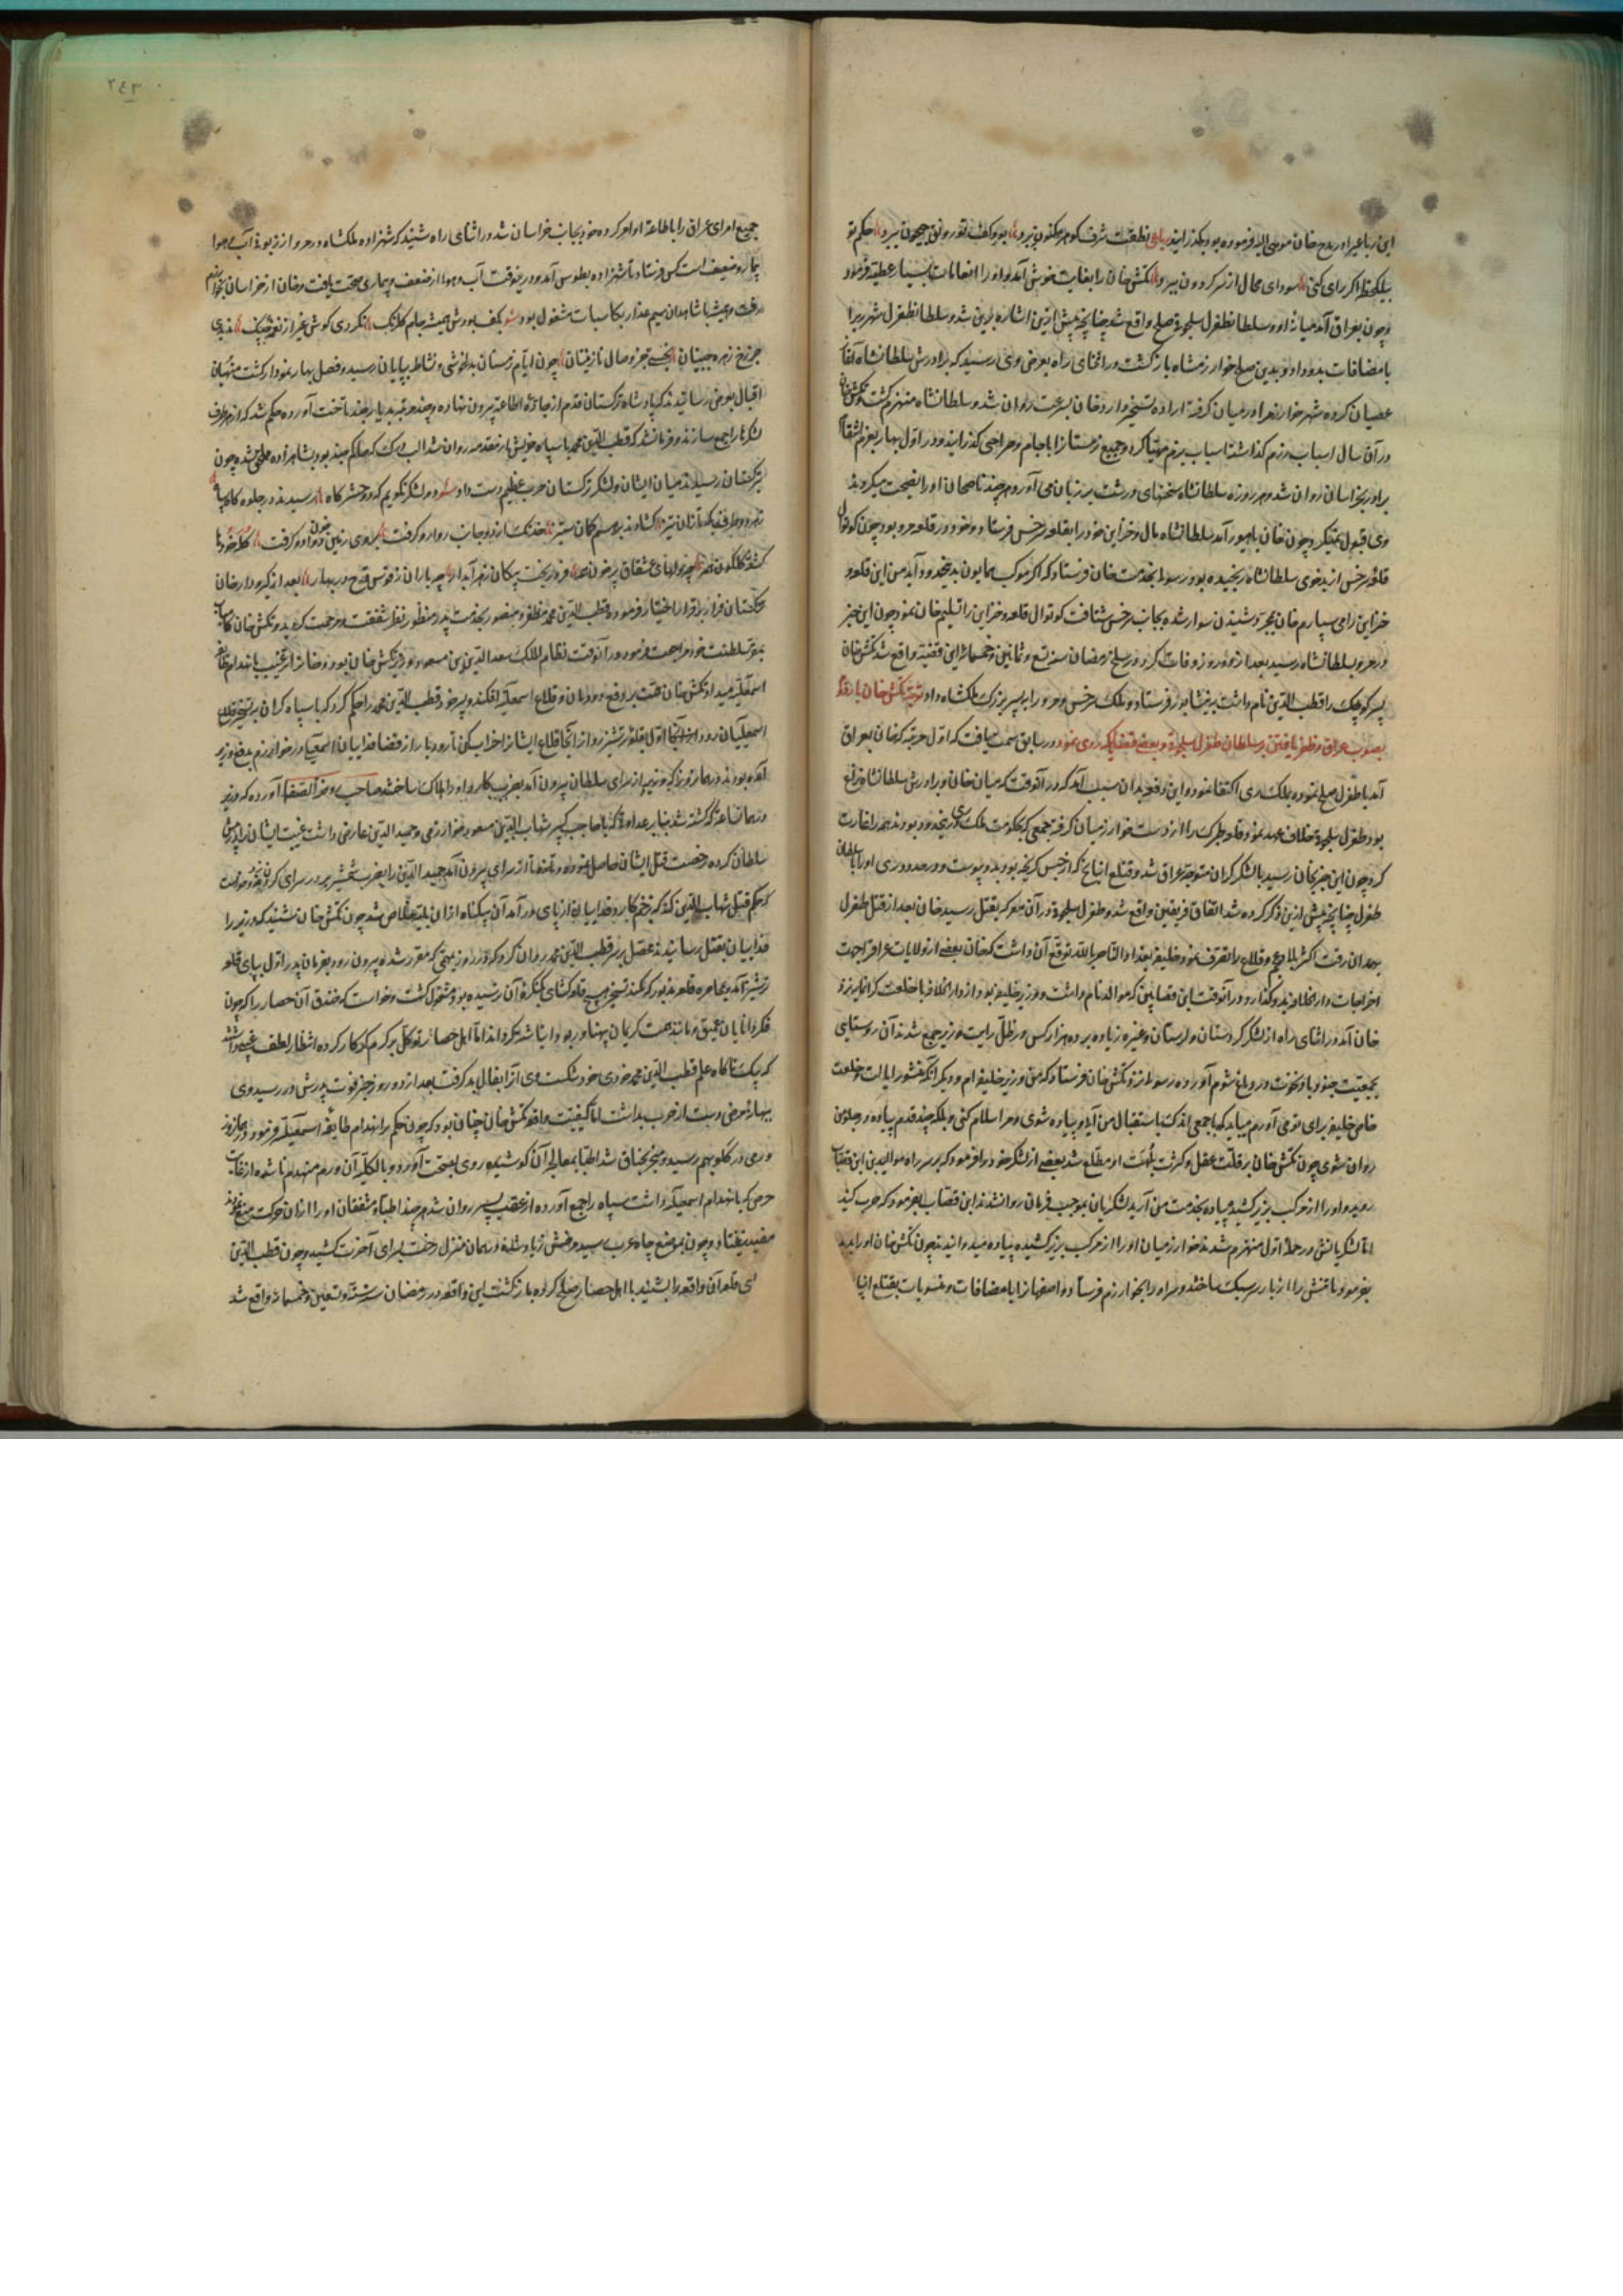 این رباعی را در مدح خان موسی الیه فرموده بود بگذرانید رباعی لطفت شرف گوهر مکنون ببرد بود کف تو رونق جیحون ببرد حکم تو
بیک لحظه اگر رای کنی سودای محال از سر گردون ببرد تکش خان را بغایت خوش آمد و او را انعامات بسیار عطیه فرمود
و چون بعراق آمد میانه او و سلطان طغرل سلجوقی صلح واقع شد چنانچه پیش ازین اشاره بدین شد و سلطان طغرل شهر ری را
با مضافات بدو داد و بدین صلح خوارزمشاه بازگشت در اثنای راه بعرض وی رسید که برادرش سلطانشاه آغاز
عصیان کرده شهر خوارزم را در میان گرفته اراده تسخیر دارد خان بسرعت روان شد و سلطانشاه منهزم گشت و تکش خان
در آن سال اسباب رزم گذاشته اسباب بزم مهیا کرد و جمیع زمستان را با جام و صراحی گذرانید و در اول بهار بعزم انتقام
برادر بخراسان روان شد و هر روزه سلطانشاه سخنهای درشت بر زبان می آورد هر چند ناصحان او را نصیحت میکردند
وی قبول نمیکرد و چون خان بابیورد آمد سلطانشاه مال و خزاین خود را بقلعه سرخس فرستاد و خود در قلعه مرو بود چون کوتوال
قلعه سرخس از بدخوی سلطانشاه رنجیده بود رسول بخدمت خان فرستاد که اگر موکب همایون بدینحدود آید من این قلعه و
خزاین را می سپارم خان بمجرد شنیدن سوار شده بجانب سرخس شتافت کوتوال قلعه و خزاین را تسلیم خان نمود چون این خبر
در مرو بسلطانشاه رسید بعد از دو روز وفات کرد در سلخ رمضان سنه تسع و ثمانین و خمسمائه این قضیه واقع شد تکش خان
پسر کوچک را قطب الدین نام داشت بنیشابور فرستاد و ملک سرخس و مرو را به پسر بزرگ ملکشاه داد توجه تکش خان بار دیگر
بصوب عراق و ظفر یافتن بر سلطان طغرل سلجوقی و بعضی قضایا که روی نمود در سابق سمت ... یافت که اول مرتبه که خان بعراق
آمد با طغرل صلح نموده بملک ری اکتفا نمود و این وقعه بدان سبب ... که در آنوقت که میان خان و برادرش سلطانشاه نزاع
بود طغرل سلجوقی خلاف عهد نمود و قلعه طبرک را از دست خوارزمیان گرفته جمعی که بحکومت ملک ری در ینحدود بودند همه را غارت
کرد چون این خبر بخان رسید با لشکر گران متوجه عراق شد و قتلغ اینانج که از حبس گریخته بود بدو پیوست و در حدود ری او را با سلطان
طغرل چنانچه پیش ازین ذکر کرده شد اتفاق فریقین واقع شد و طغرل سلجوقی در آن معرکه بقتل رسید خان بعد از قتل طغرل
بهمدان رفت اکثر بلاد عجم و قلاع را تصرف نمود و خلیفه بغداد الناصر بالله توقع آن داشت که خان بعضی از ولایات عراق را جهت
اخراجات دار الخلافه بدو گذارد و در آنوقت ابن قصاب که موید الدین نام داشت و وزیر خلیفه بود از دار الخلافه با خلعت گرانمایه نزد
خان آمد در اثنای راه از لشکر کردستان و لرستان و غیره زیاده بر ده هزار کس در ظل رایت وزیر جمع شدند آن روستای
بجمعیت جنود باد نخوت در دماغ شوم آورده رسول نزد تکش خان فرستاد که من وزیر خلیفه ام و دیگر آنکه منشور ایالت و خلعت
خاص خلیفه برای تو می آورم میباید که با جمعی اندک باستقبال من آید و پیاده شوی و مرا سلام کنی و بلکه چند قدم پیاده در جلو من
روان شوی چون تکش خان بر قلت عقل و کثرت بلاهت او مطلع شد بعضی از لشکر خود را فرمود که بر سر راه موید الدین ابن قصاب
روید و او را از مرکب بزیر کشید و پیاده بخدمت من آرید لشکریان بموجب فرمان روان شدند ابن قصاب بفرمود که حرب کنید
اما لشکریانش در حمله اول منهزم شدند خوارزمیان او را از مرکب بزیر کشیده پیاده میدوانیدند چون تکش خان او را بدید
بفرمود تا تنش را از بار سر سبک ساختند و سر او را بخوارزم فرستاد و اصفهان را با مضافات و منسوبات بقتلغ اینا
۲٤۳
جمیع امرای عراق را باطاعة او امر کرده خود بجانب خراسان شد در اثنای راه شنید که شهزاده ملکشاه در مرو از زبونی آب و هوا
بیمار و ضعیف است کس فرستاد تا شهزاده بطوس آمد و درینوقت آب و هوا از ضعف و بیماری صحت یافت و خان از خراسان بخوارزم
رفت و عیش با شاهدان سیم عذار بکاسات مشغول بود شعر بکف بودش همیشه جام گلرنگ نکردی گوش غیر از نغمه چنگ ندیدی
جز رخ زهره جبینان نجستی جز وصال نازنینان چون ایام زمستان بدلخوشی و نشاط بپایان رسید و فصل بهار نمودار گشت منهیان
اقبال بعرض رسانیدند که پادشاه ترکستان قدم از جاده اطاعة بیرون نهاده و چند مرتبه بدیار جند تاخت آورده حکم شد که از هر طرف
لشکر را جمع سازند و فرمان شد که قطب الدین محمد با سپاه خویش از مقدمه روان شد الب درک که حاکم جند بود بشاهزاده ملحق شده چون
بترکستان رسیدند میان ایشان و لشکر ترکستان حرب عظیم دست داد شعر دو لشکر نگویم که دو حشرگاه رسیدند در جلوه گاه سپاه
زهر دو طرف یکه تازان تیز گشادند بر هم کمان ستیز خدنگ از دو جانب روا رو گرفت بروی زمین خون دوا دو گرفت کله خودها
گشته گلگون همه چو دلهای عشاق پر خون همه فرو ریخت پیکان زهر آبدار چو باران ز قوس قزح در بهار بعد از گیر و دار خان
ترکستان فرار بر قرار اختیار فرموده و قطب الدین محمد مظفر و منصور بخدمت پدر منظور نظر شفقت و مرحمت گردید و تکش خان کامیاب
بمقر سلطنت خود مراجعت فرمود و در آنوقت نظام الملک سعد الدین بن مسعود که وزیر تکش خان بود و خان را ترغیب بانهدام طایفه
اسمعیلیه میداد تکش خان همت بر دفع دودمان و قلاع اسمعیلیه افکند و پسر خود قطب الدین محمد را حکم کرد که با سپاه گران بر تسخیر قلاع
اسمعیلیان رود ... اول بقلعه ترشیز رو از آنجا قلاع ایشان را خراب کن تا رودبار از قضا فداییان اسمعیلیه در خوارزم بدفع وزیر
آمده بودند در همان روز که وزیر از سرای سلطان بیرون آمد بضرب کارد او را هلاک ساختند صاحب روضة الصفا آورده که وزیر
در همان ساعة که کشته شد بنا بر عداوتی که با حاجب کبیر شهاب الدین مسعود خوارزمی و حمید الدین عارض داشت غیبت ایشان نزد
سلطان کرده رخصت قتل ایشان حاصل نموده بود تا از سرای بیرون آمد حمید الدین را بضرب شمشیر بر در سرای
که حکم قتل شهاب الدین کند که بزخم کارد فداییان از پای در آمد آن بیگناه از آن بلیه خلاص شد چون تکش خان شنید که وزیر را
فداییان بقتل رسانیدند عقب پسر قطب الدین محمد روان کرد که در روز معینی که مقرر شده بیرون رود بفرمان پدر اول بپای قلعه
ترشیز آمد و بمحاصره قلعه مذکور که کمند تسخیر هیچ قلعه گشای بکنگره آن نرسیده بود مشغول گشت و خواست که خندق آن حصار را که چون
فکر دانایان عمیق و مانند همت کریمان پهناور بود انباشته گرداند اما اهل حصار توکل بر کرم کردگار کرده انتظار لطف غیبی داشتند
که یک ناگاه علم قطب الدین محمد خودبخود شکست وی آنرا بفال بد گرفت بعد از دو روز خبر فوت پدرش در رسید وی
بیماری مرض دست از حرب بداشت اما کیفیت واقعه تکش خان چنان بود که چون حکم بر انهدام طایفه اسمعیلیه فرمود در همان روز
ورمی در گلو بهم رسید و منجر بخناق شد اطبا بمعالجه آن کوشیده روی بصحت آورد و بالکلیه آن ورم منهدم ناشده از غایت
حرص که بانهدام اسمعیلیه داشت سپاه را جمع آورده از عقب پسر روان شد هر چند اطبا و مشفقان او را از آن حرکت منع نمودند
مفید نیفتاد و چون بموضع چاه عرب رسید مرضش زیاده شد و در همان منزل رخت بسرای آخرت کشید و چون قطب الدین
ای قلعه آن واقعه را بشنید با اهل حصار صلح کرده بازگشت این واقعه در رمضان سنه ستة و تسعین و خمسمائه واقع شد